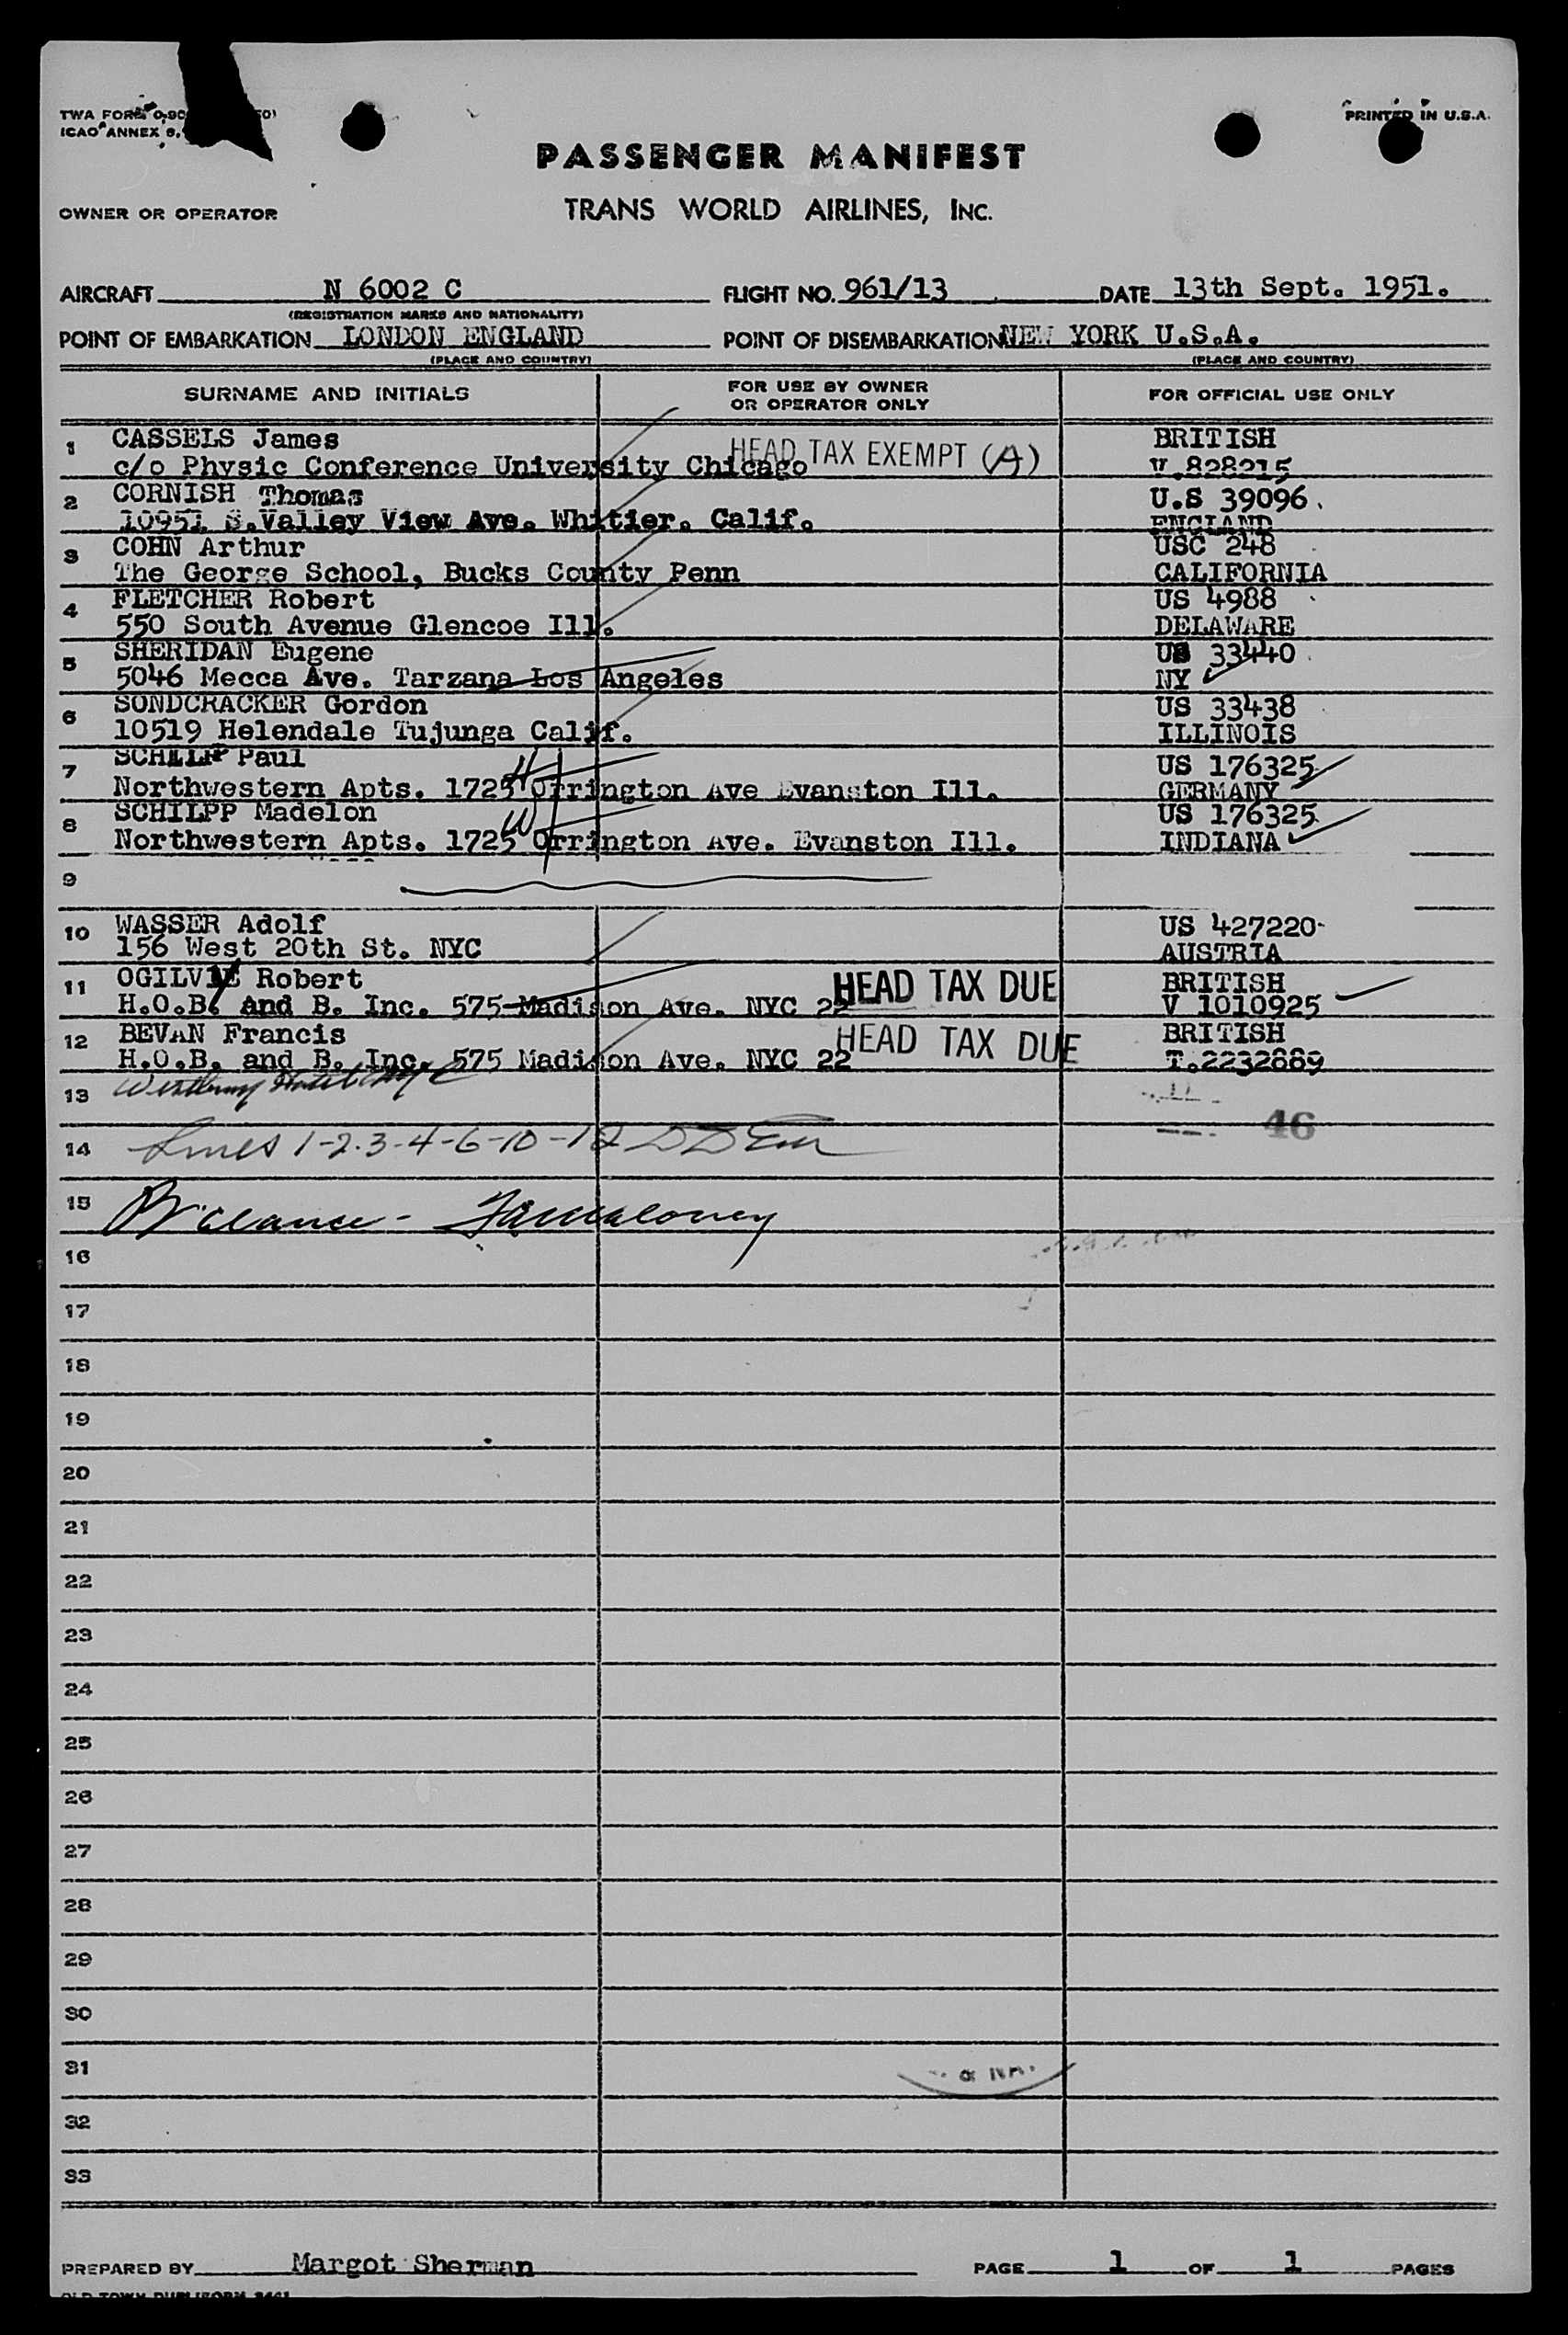 TWA FORM
ICAO ANNEX 9,
PRINTED IN U.S.A.
PASSENGER MANIFEST
OWNER OR OPERATOR
TRANS WORLD AIRLINES, INC.
AIRCRAFT N 6002 C FLIGHT NO. 961/13 DATE 13th Sept. 1951.
(REGISTRATION MARKS AND NATIONALITY)
POINT OF EMBARKATION LONDON ENGLAND POINT OF DISEMBARKATION NEW YORK U.S.A.
(PLACE AND COUNTRY) (PLACE AND COUNTRY)
SURNAME AND INITIALS FOR USE BY OWNER OR OPERATOR ONLY FOR OFFICIAL USE ONLY
1 CASSELS James HEAD TAX EXEMPT (A) BRITISH
c/o Physic Conference University Chicago V.828215
2 CORNISH Thomas U.S 39096.
10951 S.Valley View Ave. Whitier. Calif. ENGLAND
3 COHN Arthur USC 248
The George School, Bucks County Penn CALIFORNIA
4 FLETCHER Robert US 4988
550 South Avenue Glencoe Ill. DELAWARE
5 SHERIDAN Eugene US 33440
5046 Mecca Ave. Tarzana Los Angeles NY
6 SONDCRACKER Gordon US 33438
10519 Helendale Tujunga Calif. ILLINOIS
7 SCHILPP Paul US 176325
H
Northwestern Apts. 1725 Orrington Ave Evanston Ill. GERMANY
8 SCHILPP Madelon US 176325
W
Northwestern Apts. 1725 Orrington Ave. Evanston Ill. INDIANA
9
10 WASSER Adolf US 427220
156 West 20th St. NYC AUSTRIA
11 OGILVIE Robert HEAD TAX DUE BRITISH
H.O.B. and B. Inc. 575 Madison Ave. NYC 22 V 1010925
12 BEVAN Francis HEAD TAX DUE BRITISH
H.O.B. and B. Inc. 575 Madison Ave. NYC 22 T.2232889
13 Westbury Hotel NYC
46
14 Lines 1-2-3-4-6-10-12
15
16
17
18
19
20
21
22
23
24
25
26
27
28
29
30
31
32
33
PREPARED BY Margot Sherman PAGE 1 OF 1 PAGES